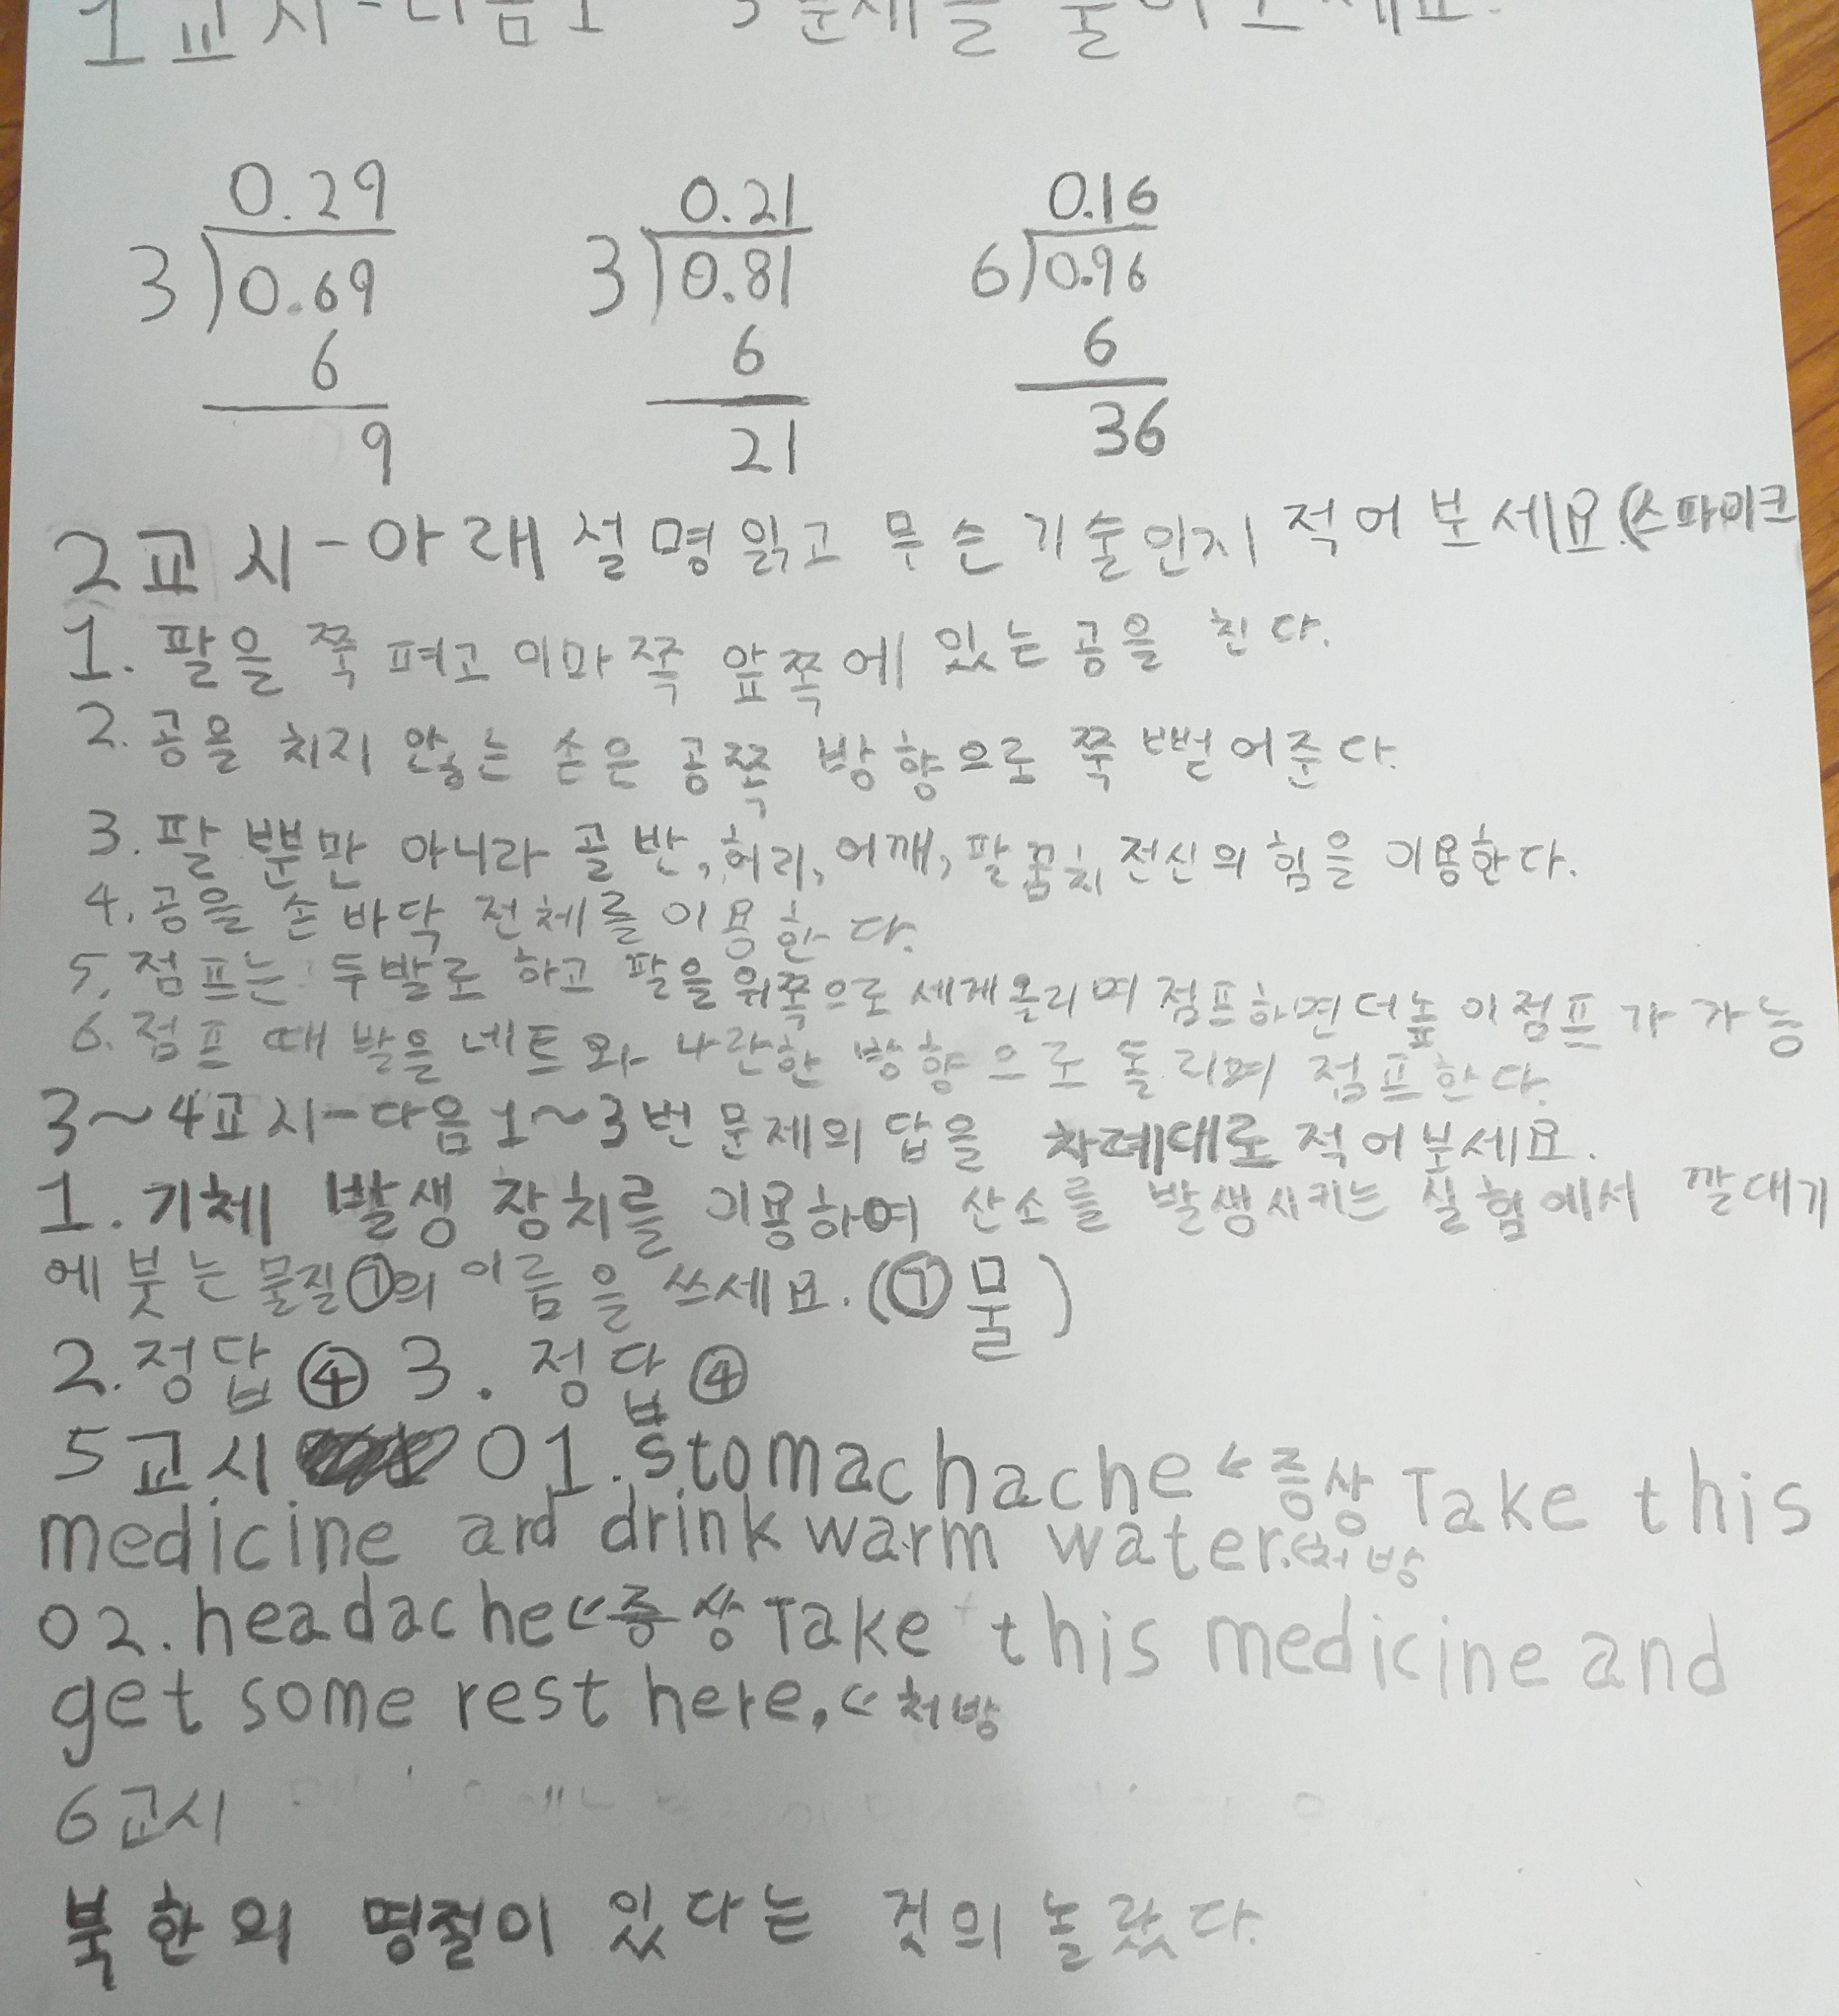 1교시-다음 1 3문제를 풀어보세요.
0.29 0.21 0.16
3)0.69 3)0.81 6)0.96
6 6 6
9 21 36
2교시-아래 설명읽고 무슨기술인지 적어보세요.(스파이크
1. 팔을 쭉 펴고 이마쪽 앞쪽에 있는 공을 친다.
2. 공을 치지 않는 손은 공쪽 방향으로 쭉 뻗어준다.
3. 팔 뿐만 아니라 골반, 허리, 어깨, 팔꿈치 전신의 힘을 이용한다.
4. 공을 손바닥 전체를 이용한다.
5. 점프는 두발로 하고 팔을 위쪽으로 세게올리며 점프하면 더높이점프가 가능
6. 점프 때 발을 네트와 나란한 방향으로 돌리며 점프한다.
3~4교시-다음 1~3번 문제의 답을 차례대로 적어보세요.
1. 기체 발생 장치를 이용하여 산소를 발생시키는 실험에서 깔대기
에 붓는 물질㉠의 이름을 쓰세요.(㉠물)
2. 정답 ④ 3. 정답 ④
5교시 01. stomachache ↙증상 Take this
medicine and drink warm water.↙처방
02. headache ↙증상 Take this medicine and
get some rest here. ↙처방
6교시
북한의 명절이 있다는 것의 놀랐다.